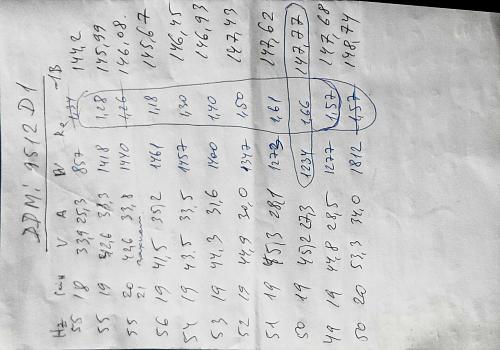 DDMi 9512 D1
Hz сек V A W Re -1B
55 18 33,9 25,3 857 144,2
55 19 42,6 1418 1,28 145,99
55 20 42,6 33,8 1440 1,26 146,08
21
56 19 41,5 35,2 1461 1,18 145,67
54 19 43,5 33,5 1457 1,30 146,45
53 19 44,3 31,6 1400 1,40 146,93
52 19 44,9 30,0 1347 1,50 147,43
51 19 45,3 28,1 1,61 147,62
50 19 45,2 27,3 1234 1,66 147,77
49 19 44,8 28,5 1277 1,57 147,68
50 20 53,3 34,0 1812 1,57 148,74